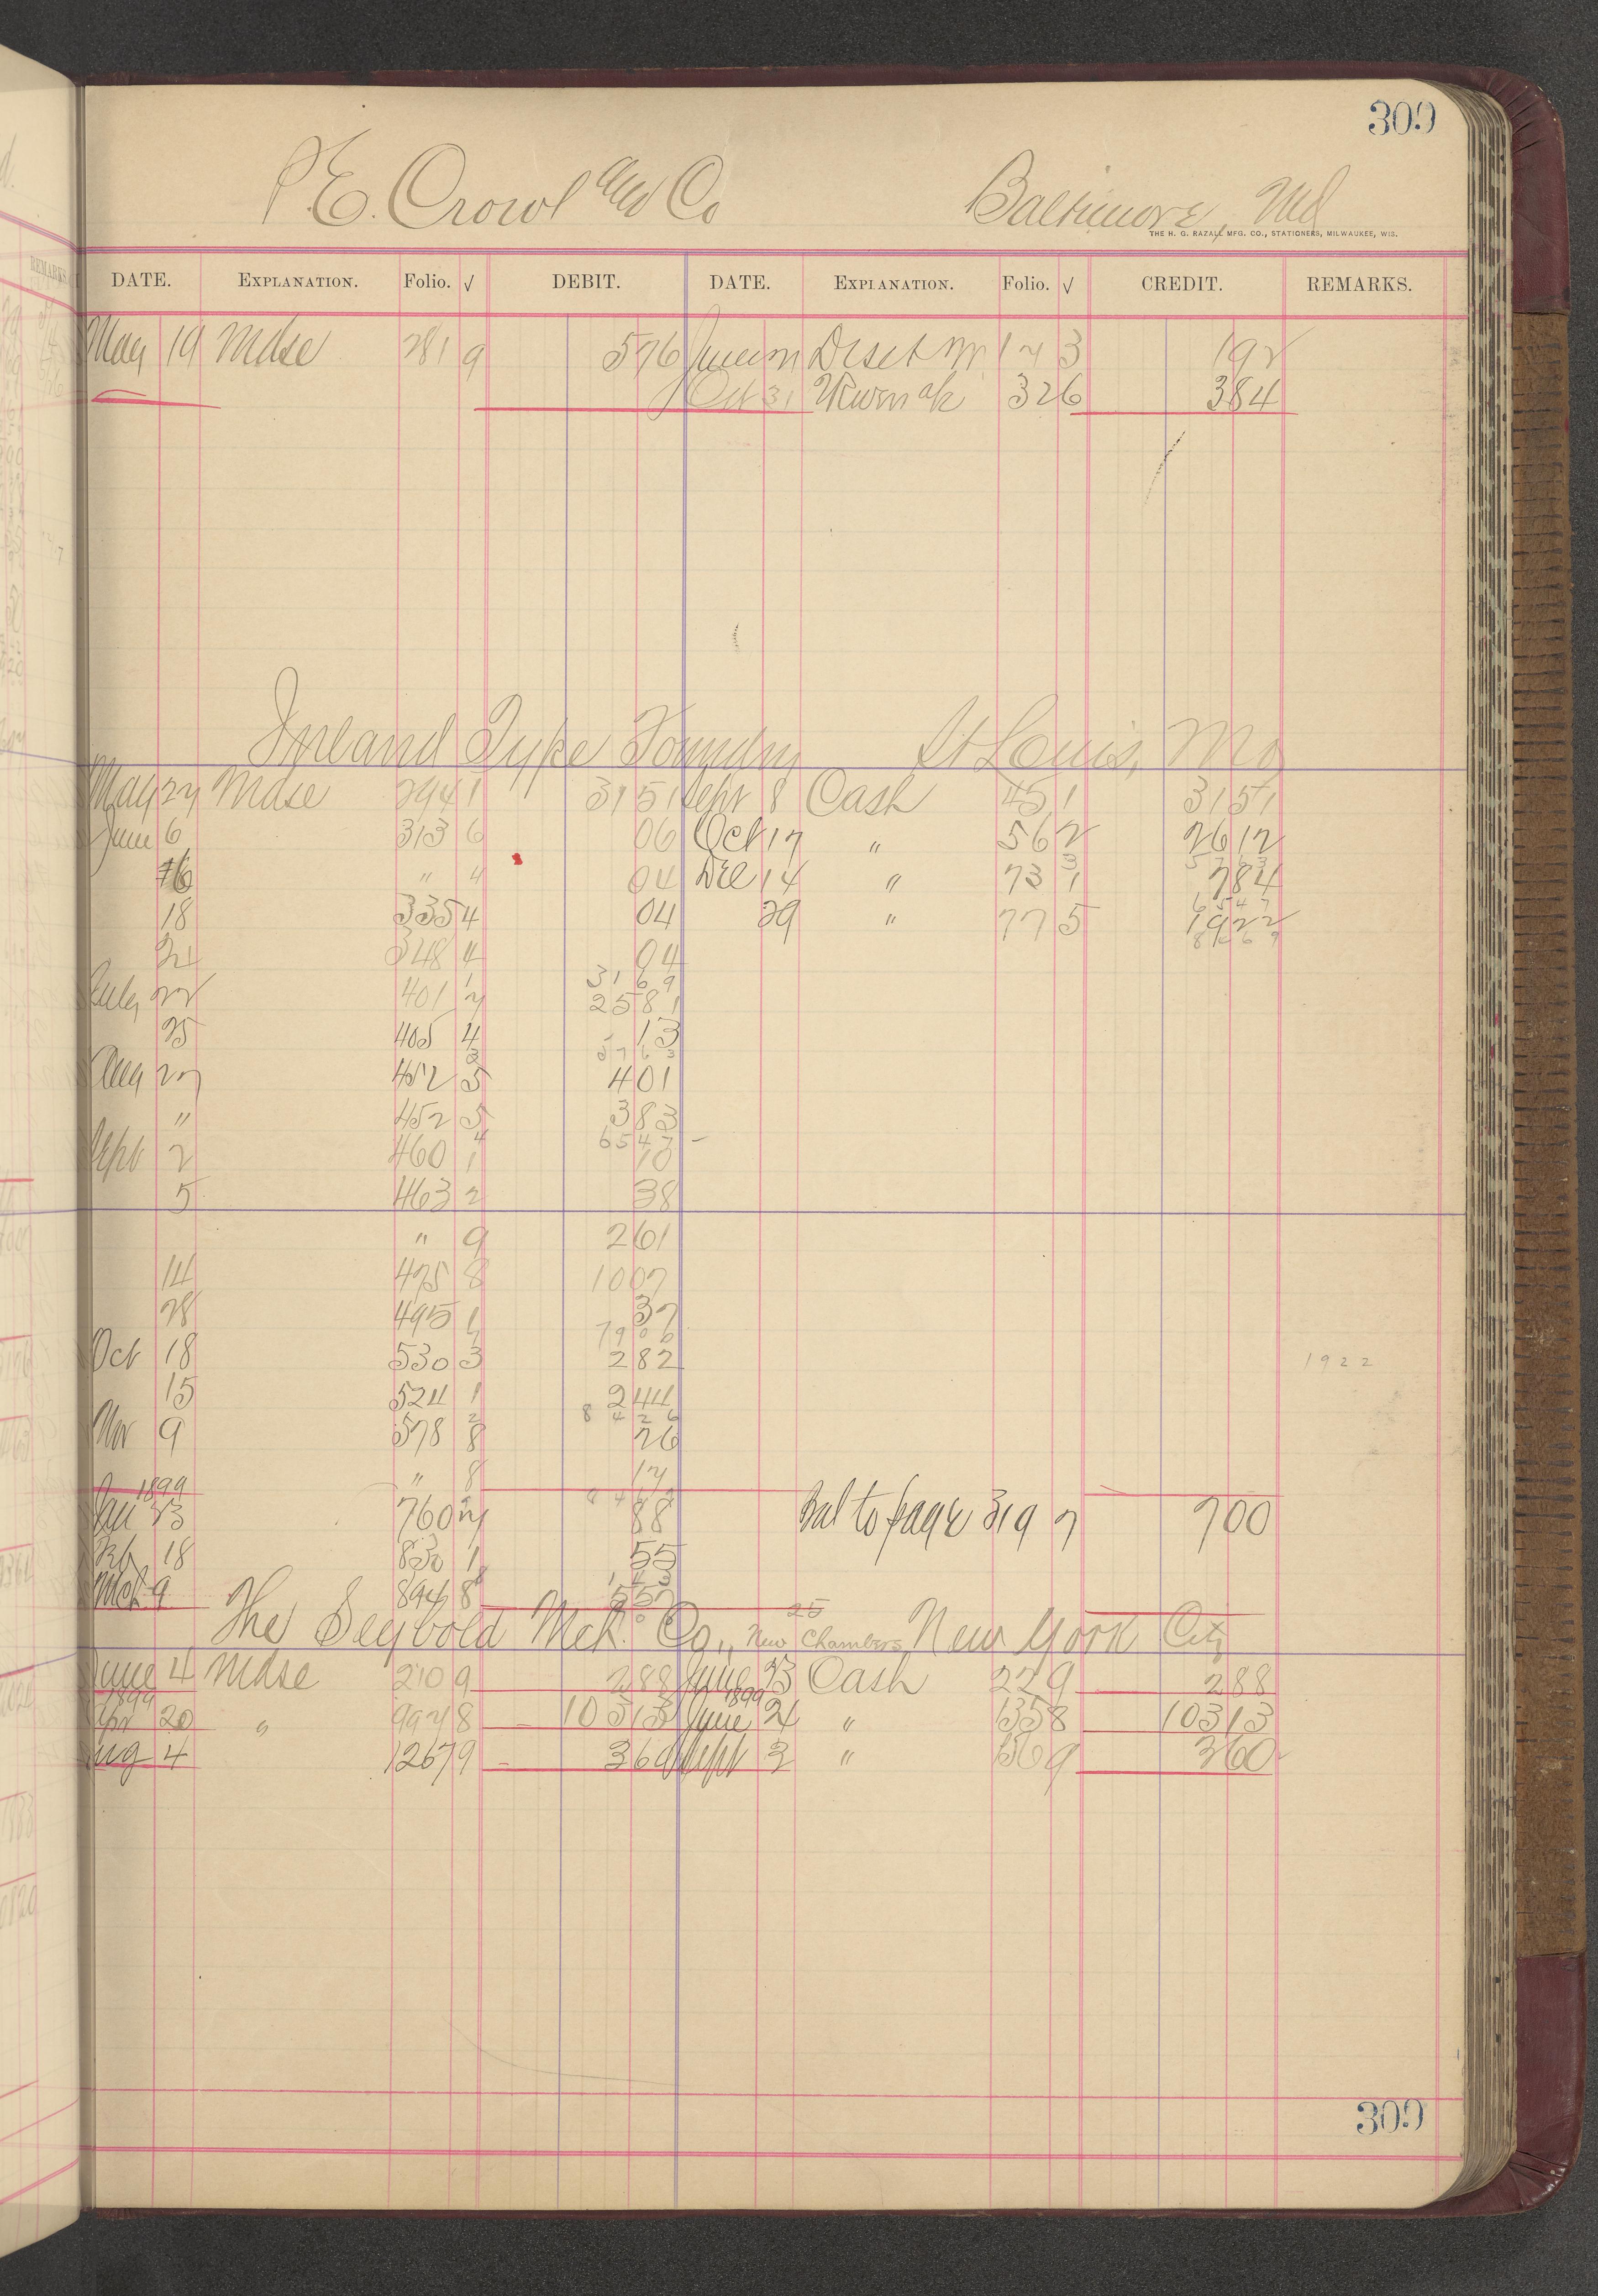 309
P. E. Crowl and Co Baltimore, Md
THE H. G. RAZALL MFG. CO., STATIONERS, MILWAUKEE, WIS.
DATE. EXPLANATION. Folio. √ DEBIT. DATE. EXPLANATION. Folio. √ CREDIT. REMARKS.
May 19 Mdse 281 9 576 Disct 3 192
Oct 31 326 384
Inland Type Foundry St Louis, Mo
May 27 Mdse 294 1 3151 Sept 8 Cash 45 1 3151
June 6 313 6 06 Oct 17 " 56 2 2612
16 " 4 04 Dec 14 " 73 1 784
18 335 4 04 29 " 77 5 1922
21 348 4 04
3169
July 22 401 2581
25 405 4 13
5763
Aug 27 452 5 401
" 452 5 383
6547
Sept 2 460 1 10
5 463 2 38
" 9 261
14 475 8 1007
28 495 1 37
7906
Oct 18 530 3 282 1922
15 524 1 244
8426
Nov 9 578 8 26
" 8 17
1899
Jan 23 760 88 Bal to page 319 7 700
Feb 18 830 1 55
Mch 9 894 8 557
The Seybold Mch. Co., 25 New Chambers New York City
June 4 Mdse 210 9 288 June 23 Cash 229 288
1899 1899
Apr 20 " 994 8 10313 June 24 " 1358 10313
Aug 4 1267 9 360 Sept 2 " 360
309